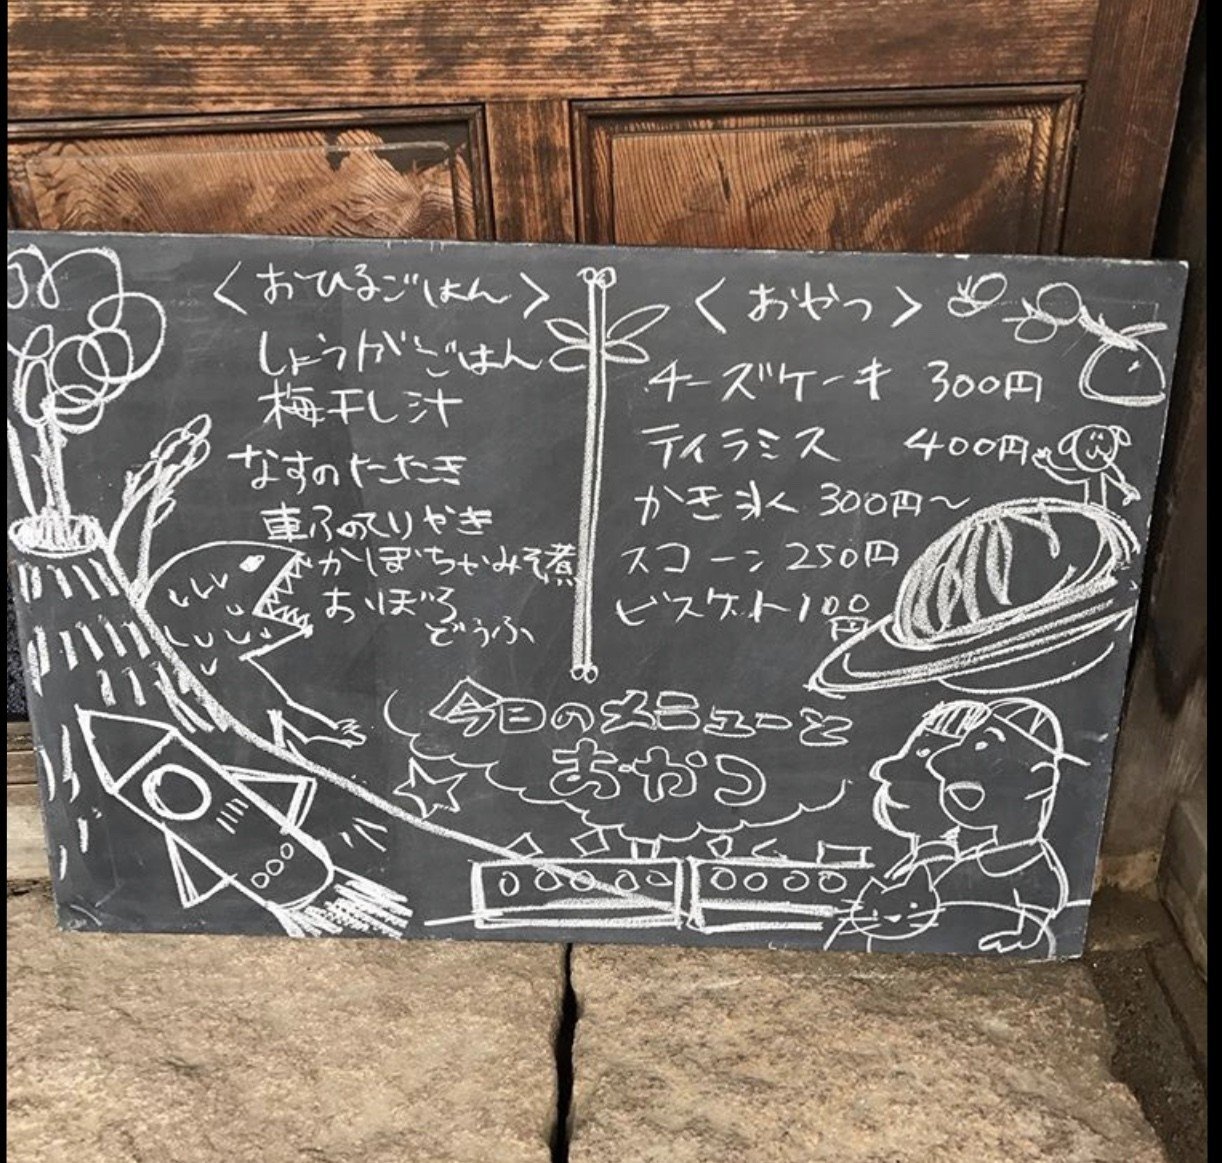 〈おひるごはん〉
しょうがごはん
梅干し汁
なすのたたき
車ふのてりやき
かぼちゃみそ煮
おぼろ
どうふ
〈おやつ〉
チーズケーキ 300円
ティラミス 400円
かき氷 300円〜
スコーン 250円
ビスケット 100
円
今日のメニューと
おやつ